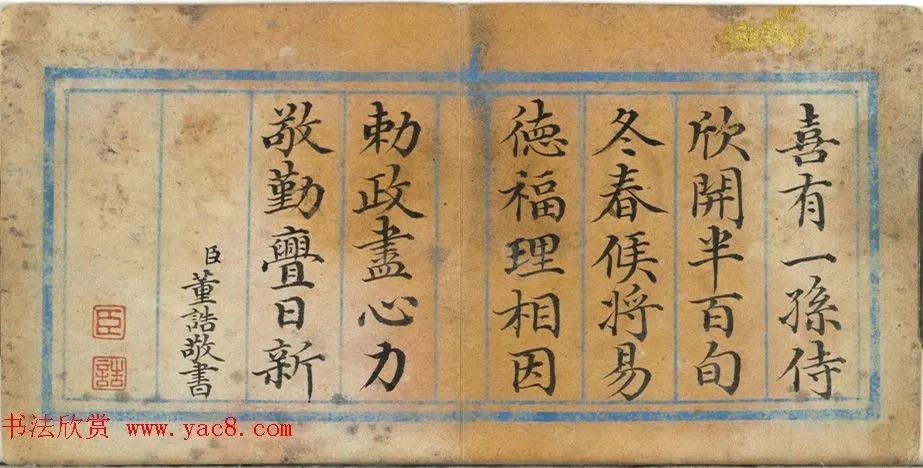 喜有一孫侍
欣開半百旬
冬春候将易
徳福理相因
勅政盡心力
敬勤亹日新
臣董誥敬書
臣
誥
书法欣赏 www.yac8.com